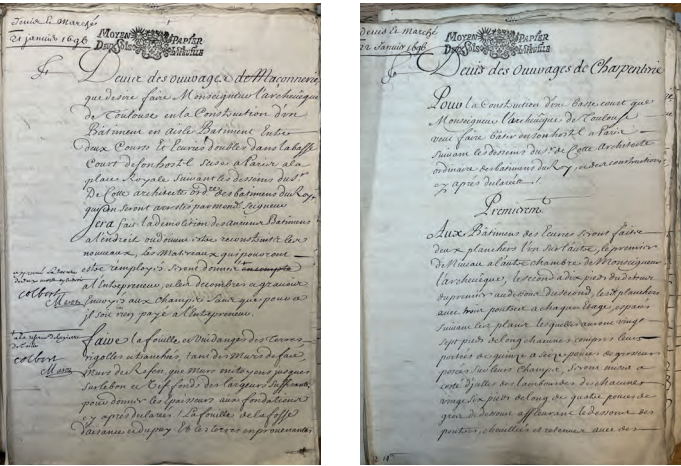 Devis et Marché
21 janvier 1696
MOYEN PAPIER
DEUX SOLS LA FEUILLE
Devis des ouvrages de Maconnerie
que desire faire Monseigneur l'archevêque
de Toulouse en la Construction d'un
Bâtiment en aisle Batiment Entre
deux Cours Et Ecuries doubles dans la basse
Court de son hostel scise a Paris a la
place Royale suivant les desseins du Sr
De Cotte architecte ordre des batimens du Roy
qui en seront arrestés par mond. seigneur
Sera fait la demolition des anciens Batimens
a l'endroit ou doivent estre reconstruits les
nouveaux, Les Matereaux qui pouront
estre employés seront donnés en compte
a l'Entrepreneur, et les decombres et gravois
Envoyés aux champs sans que pour ce
il soit rien payé a l'Entrepreneur.
colbert
faire la fouille et Vuidanges des terres
rigolles et tranchés, tant des Murs de face,
murs de Refen, que murs mitoyens jusques
sur le bon et Vif fond des largeurs suffisantes
pour donner les Epaisseurs aux fondations
cy après declarées. La fouille de la fosse
d'aisance et du puy Et les terres en provenantes
colbert
Devis et Marché
22 Janvier 1696
MOYEN PAPIER
DEUX SOLS LA FEUILLE
Devis des Ouvrages de Charpenterie
Pour la Construction d'une basse court que
Monseigneur l'archevêque de Toulouse
veut faire bâtir en son hostel a Paris
suivant les desseins du Sr de Cotte Architecte
ordinaire des batimens du Roy, et des constructions
cy après declarées.
Premierent
Aux Bâtimens des Ecuries seront faits
deux planchers l'un sur l'autre, le premier
de Niveau a l'autre chambre de Monseigneur
l'archevêque, le second a dix pieds du dessus
du premier au dessous du second, lesd. planchers
avec trois poutres a chaques Etages, espacés
suivant leur place lesquelles auront vingt
sept pieds de long chacunes compris leurs
portées de quinze a seize pouces de grosseur
posées sur leurs champs, seront mises a
costé d'icelles des lambourdes de chacunes
vingt six pieds de long de quatre pouces de
gros de dessous affleurant le dessous des
poutres, chevillées et retenues avec des